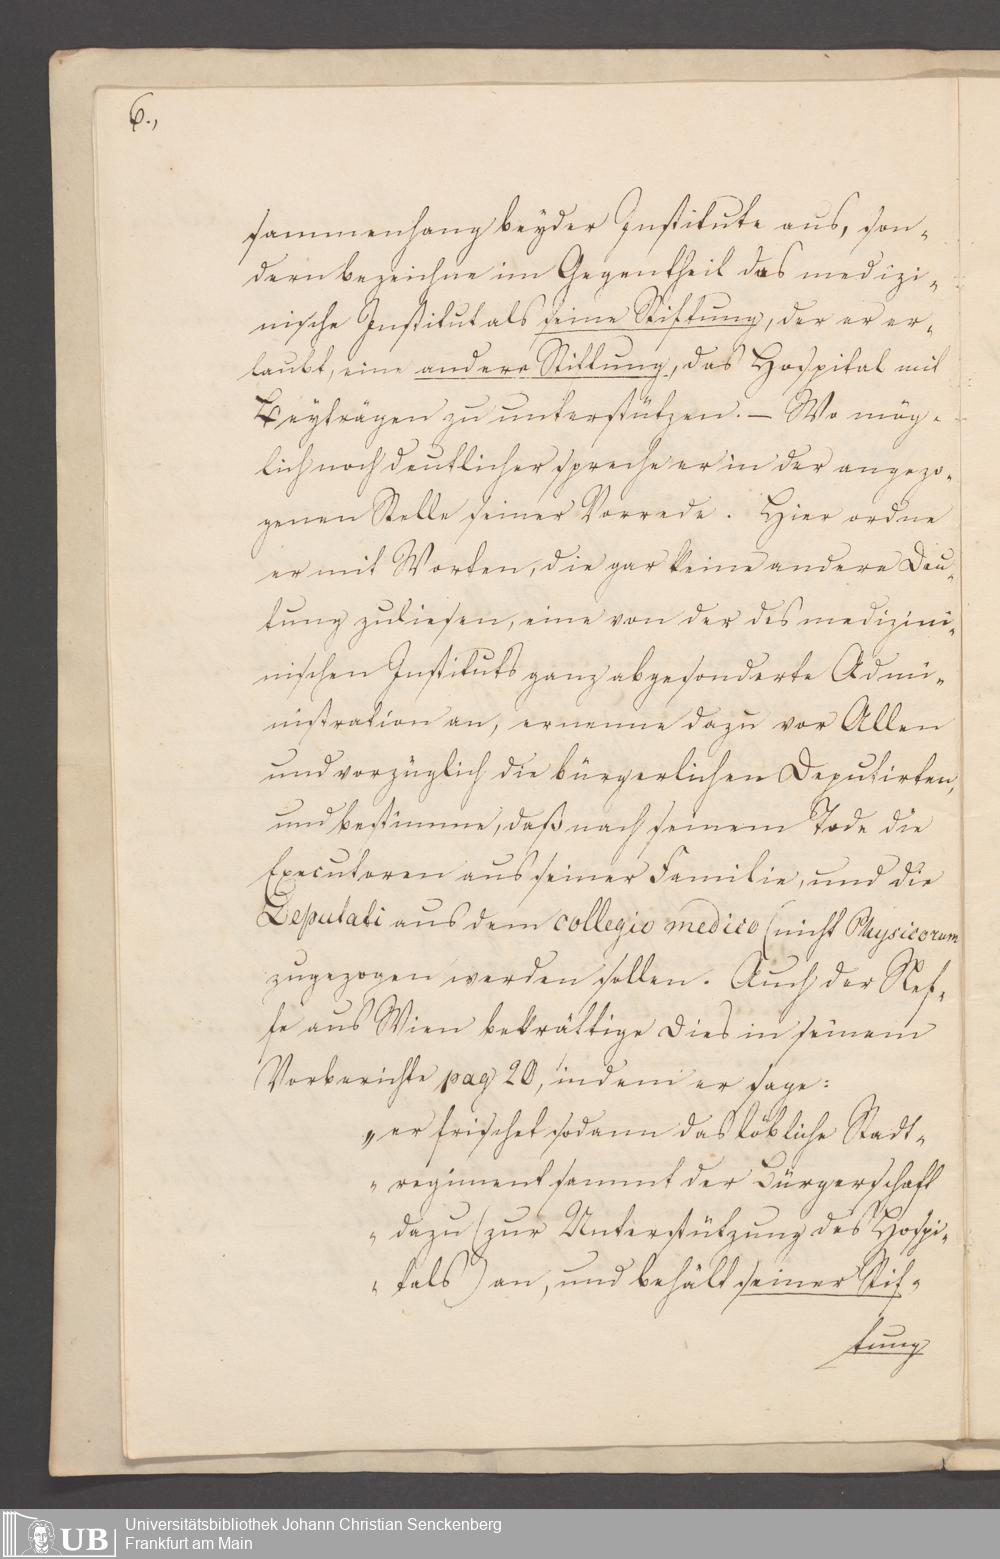 6.,
sammenhang beyder Institute aus, son-
dern bezeichne im Gegentheil das medizi-
nische Institut als seine Stiftung, der er er-
laubt, eine andere Stiftung, das Hospital mit
Beyträgen zu unterstützen. — Wo mög-
lich noch deutlicher spreche er in der angezo-
genen Stelle seiner Vorrede. Hier ordne
er mit Worten, die gar keine andere Deu-
tung zuliesen, eine von der des medizini-
nischen Instituts ganz abgesonderte Admi-
nistration an, ernenne dazu vor Allen
und vorzüglich die bürgerlichen Deputirten,
und bestimme, daß nach seinem Tode die
Executoren aus seiner Familie, und die
Deputati aus dem collegio medico (nicht Physicorum
zugezogen werden sollen. Auch der Nef-
fe aus Wien bekräftige dies in seinem
Vorberichte pag 20, indem er sage:
„er frischet sodann das löbliche Stadt-
„ regiment sammt der Bürgerschaft
„ dazu (zur Unterstützung des Hospi-
„ tals) an, und behält seiner Stif-
tung
UB Universitätsbibliothek Johann Christian Senckenberg
Frankfurt am Main